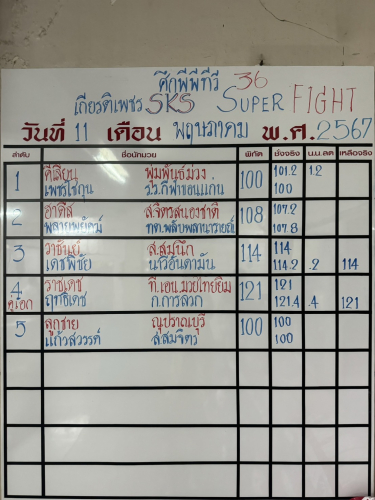 ศึกพีพีทีวี 36
เกียรติเพชร SKS SUPER FIGHT
วันที่ 11 เดือน พฤษภาคม พ.ศ. 2567
ลำดับ ชื่อนักมวย พิกัด ชั่งจริง น.น.ลด เหลือจริง
1 คีเลียน พุ่มพันธ์ม่วง 100 101.2 1.2
เพชรโชกุน รร.กีฬาขอนแก่น 100
2 อาดีส ส.จิตรสนองชาติ 108 107.2
พลายพยัคฆ์ 107.8
3 วาซันยู ส.สมนึก 114 114
เดชพิชัย นาวีอันดามัน 114.2 .2 114
4 ราชเดช ที.เอ็น.มวยไทยยิม 121 121
คู่เอก ฤทธิเดช ก.การสวก 121.4 .4 121
5 ลูกชาย ณุปราณบุรี 100 100
แก้วสวรรค์ ส.สมจิตร 100